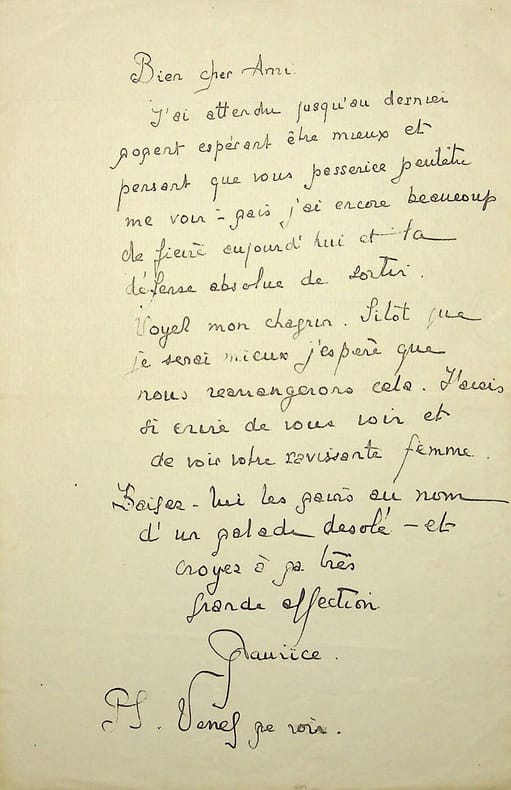 Bien cher Ami.
J'ai attendu jusqu'au dernier
moment espérant être mieux et
pensant que vous passeriez peutêtre
me voir - mais j'ai encore beaucoup
de fièvre aujourd'hui et la
défense absolue de sortir.
Voyez mon chagrin. Sitôt que
je serai mieux j'espère que
nous rearrangerons cela. J'avais
si envie de vous voir et
de voir votre ravissante femme.
Baisez-lui les mains au nom
d'un malade desolé - et
croyez à ma très
grande affection
Maurice.
PS. Venez me voir.